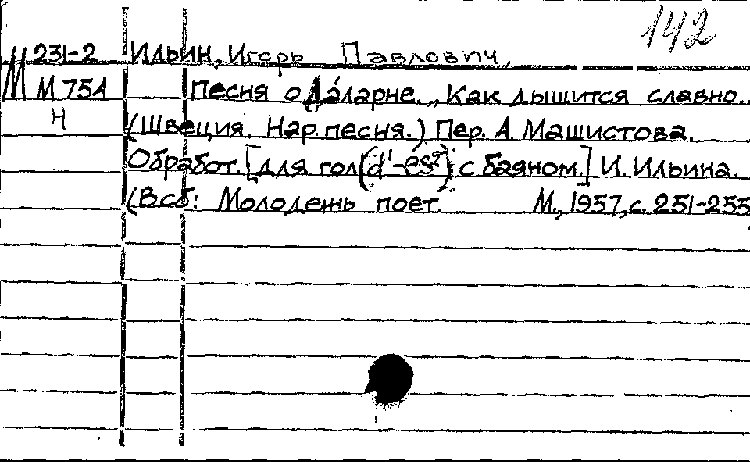 142
М 231-2 Ильин, Игорь Павлович,
М 75А Песня о Да́ларне. „Как дышится славно.
Н (Швеция. Нар. песня.) Пер. А. Машистова.
Обработ. [для гол (d'-es²) с баяном.] И. Ильина.
(В сб: Молодежь поет. М., 1957, с. 251-255